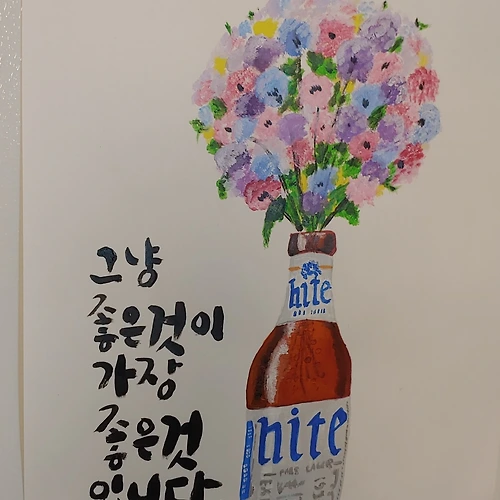 그냥
좋은것이
가장
좋은것
입니다
hite
hite